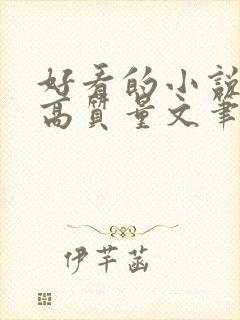 好看的小說
高質量文筆
伊芊菡